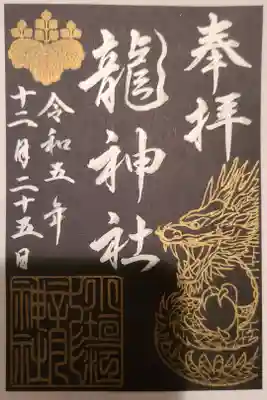 奉拝
龍神社
令和五年
十二月二十五日